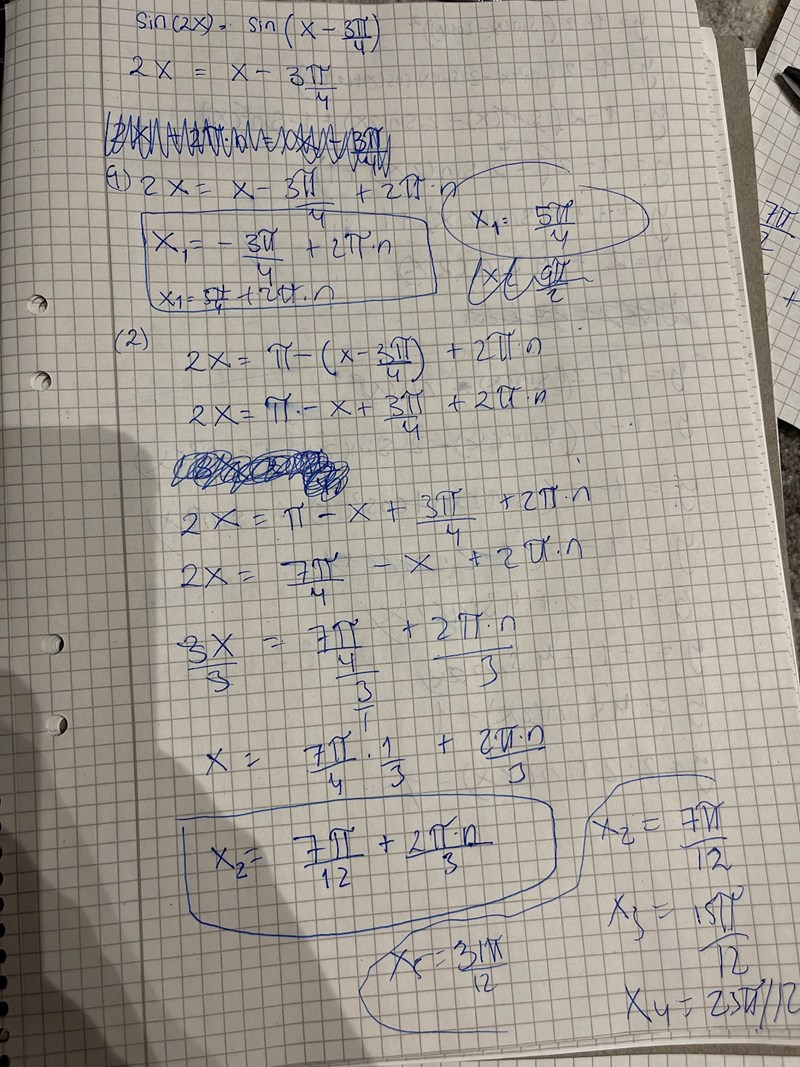 sin(2x) = sin(x - 3π/4)
2x = x - 3π/4
(1) 2x = x - 3π/4 + 2π·n
x₁ = - 3π/4 + 2π·n
x₁ = 5π/4 + 2π·n
x₁ = 5π/4
(2)
2x = π - (x - 3π/4) + 2π·n
2x = π - x + 3π/4 + 2π·n
2x = π - x + 3π/4 + 2π·n
2x = 7π/4 - x + 2π·n
3x/3 = 7π/4/3/1 + 2π·n/3
x = 7π/4 · 1/3 + 2π·n/3
x₂ = 7π/12 + 2π·n/3
x₂ = 7π/12
x₃ = 15π/12
x₄ = 23π/12
x₅ = 31π/12
7π